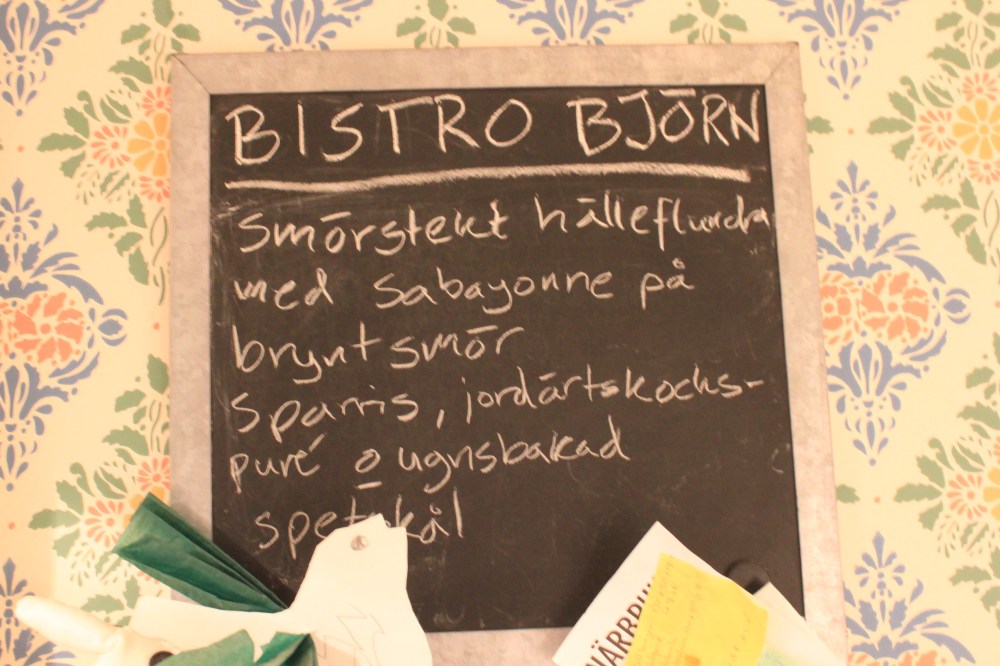 BISTRO BJÖRN
Smörstekt hälleflundra
med Sabayonne på
brynt smör
Sparris, jordärtskocks-
puré o ugnsbakad
spetskål